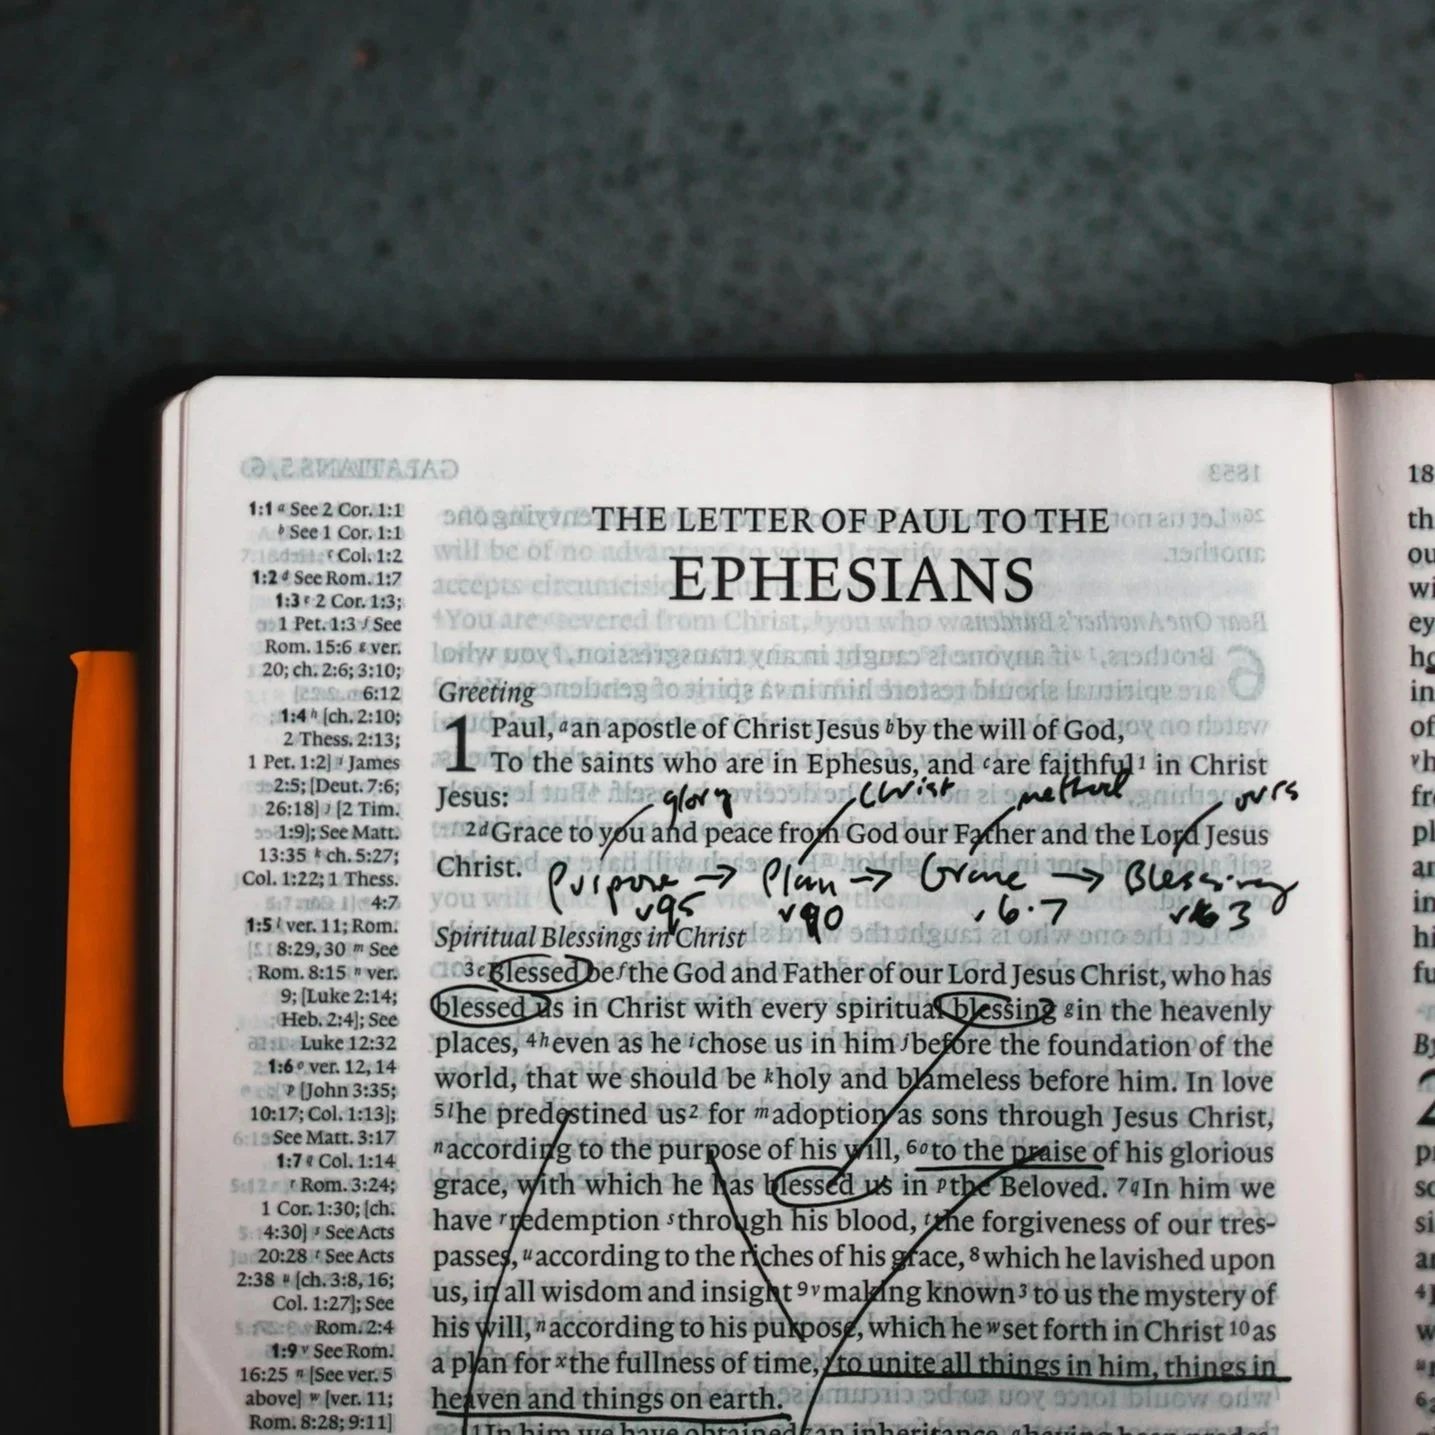 1:1 a See 2 Cor. 1:1
b See 1 Cor. 1:1
c Col. 1:2
1:2 d See Rom. 1:7
1:3 e 2 Cor. 1:3;
1 Pet. 1:3 f See
Rom. 15:6 g ver.
20; ch. 2:6; 3:10;
6:12
1:4 h [ch. 2:10;
2 Thess. 2:13;
1 Pet. 1:2] i James
2:5; [Deut. 7:6;
26:18] j [2 Tim.
1:9]; See Matt.
13:35 k ch. 5:27;
Col. 1:22; 1 Thess.
4:7
1:5 l ver. 11; Rom.
8:29, 30 m See
Rom. 8:15 n ver.
9; [Luke 2:14;
Heb. 2:4]; See
Luke 12:32
1:6 o ver. 12, 14
p [John 3:35;
10:17; Col. 1:13];
See Matt. 3:17
1:7 q Col. 1:14
r Rom. 3:24;
1 Cor. 1:30; [ch.
4:30] s See Acts
20:28 t See Acts
2:38 u [ch. 3:8, 16;
Col. 1:27]; See
Rom. 2:4
1:9 v See Rom.
16:25 n [See ver. 5
above] w [ver. 11;
Rom. 8:28; 9:11]
THE LETTER OF PAUL TO THE
EPHESIANS
Greeting
1 Paul, a an apostle of Christ Jesus b by the will of God,
To the saints who are in Ephesus, and c are faithful 1 in Christ
Jesus:
glory Christ method ours
2 d Grace to you and peace from God our Father and the Lord Jesus
Christ.
Purpose → Plan → Grace → Blessing
v6.7 3
Spiritual Blessings in Christ
3 e Blessed be f the God and Father of our Lord Jesus Christ, who has
blessed us in Christ with every spiritual blessing g in the heavenly
places, 4 h even as he i chose us in him j before the foundation of the
world, that we should be k holy and blameless before him. In love
5 l he predestined us 2 for m adoption as sons through Jesus Christ,
n according to the purpose of his will, 6 o to the praise of his glorious
grace, with which he has blessed us in p the Beloved. 7 q In him we
have r redemption s through his blood, t the forgiveness of our tres-
passes, u according to the riches of his grace, 8 which he lavished upon
us, in all wisdom and insight 9 v making known 3 to us the mystery of
his will, n according to his purpose, which he w set forth in Christ 10 as
a plan for x the fullness of time, y to unite all things in him, things in
heaven and things on earth.
In him we have obtained an inheritance,